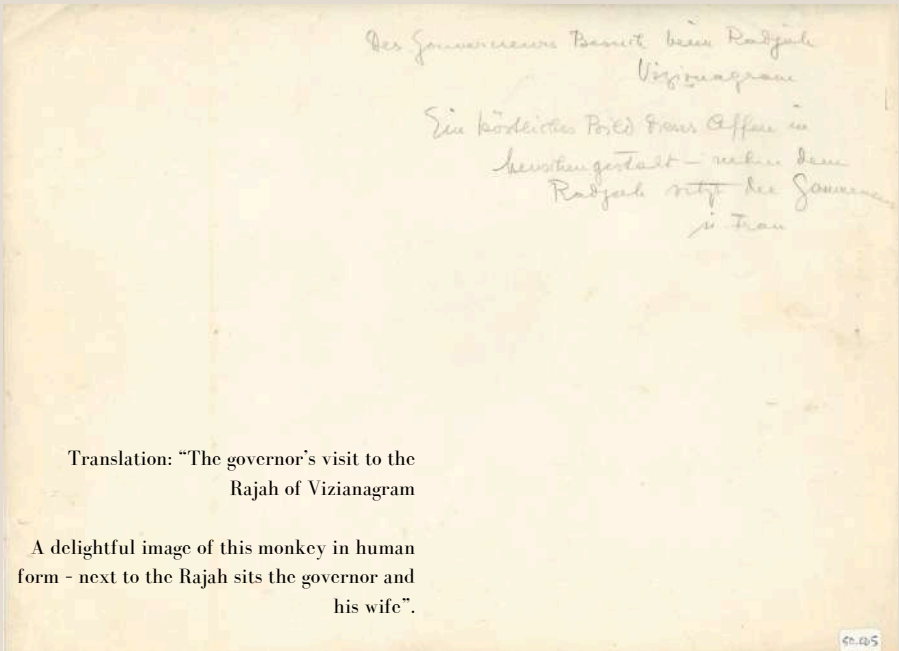 Des Gouverneurs Besuch beim Radjah
Vizianagram
Ein köstliches Bild dieses Affen in
Menschengestalt – neben dem
Radjah sitzt der Gouverneur
u Frau
Translation: “The governor’s visit to the
Rajah of Vizianagram
A delightful image of this monkey in human
form - next to the Rajah sits the governor and
his wife”.